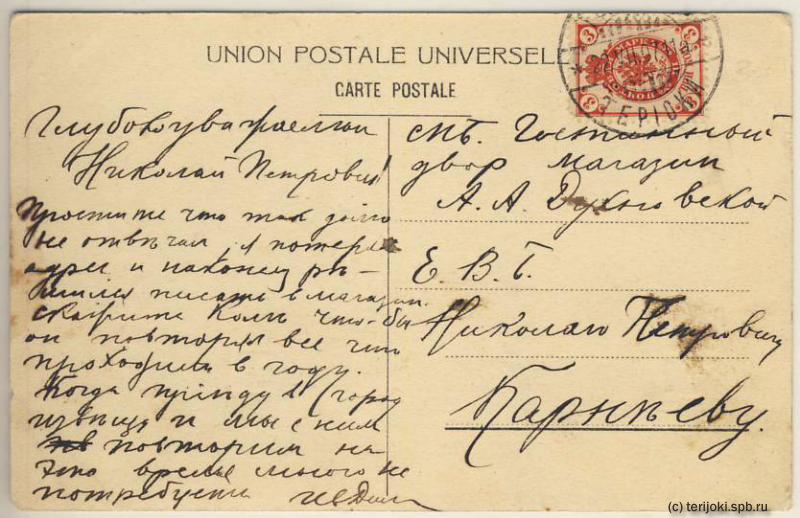 UNION POSTALE UNIVERSELLE
CARTE POSTALE
3 3
МАРКА
3 3
ТЕРІОКИ
Глубокоуважаемый
Николай Петровичъ!
Простите что такъ долго
не отвѣчал, я потерял
адрес и наконец рѣ-
шился писать в магазин.
скажите Коле что-бы
он повторял все что
проходили в году.
Когда пріѣду в город
извѣщу и мы с ним
повторим на
это время много не
потребуется
спѣ. Гостинный
двор магазин
А. А. Духновской
Е. В. Б.
Николаю Петровичу
Карнѣеву.
(c) terijoki.spb.ru